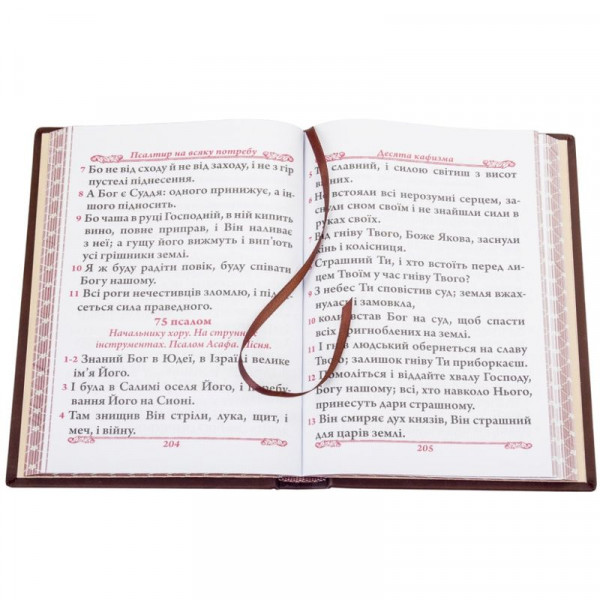 Псалтир на всяку потребу
7 Бо не від сходу й не від заходу, і не з гір
пустелі піднесення.
8 А Бог є Суддя: одного принижує, а ін-
шого підносить.
9 Бо чаша в руці Господній, в ній кипить
вино, повне приправ, і Він наливає
з неї; а гущу його вижмуть і вип'ють
усі грішники землі.
10 Я ж буду радіти повік, буду співати
Богу нашому.
11 Всі роги нечестивців зломлю, і
сеться сила праведного.
75 псалом
Начальнику хору. На струнних
інструментах. Псалом Асафа. Пісня.
1-2 Знаний Бог в Юдеї, в Ізраїлі велике
ім'я Його.
3 І була в Салимі оселя Його, і
вання Його на Сионі.
4 Там знищив Він стріли, лука, щит, і
меч, і війну.
204
Десята кафизма
5 славний, і силою світиш з висот
6 Не встояли всі нерозумні серцем, за-
снули сном своїм і не знайшли сили в
руках своїх.
7 Від гніву Твого, Боже Якова, заснули
кінь і колісниця.
8 Страшний Ти, і хто встоїть перед ли-
цем Твоїм у час гніву Твого?
9 З небес Ти сповістив суд; земля вжах-
нулася і замовкла,
10 коли встав Бог на суд, щоб спасти
всіх пригноблених на землі.
11 І гнів людський обернеться на славу
Твою; залишок гніву Ти приборкаєш.
12 Помоліться і віддайте хвалу Господу,
Богу нашому; всі, хто навколо Нього,
принесуть дари страшному.
13 Він смиряє дух князів, Він страшний
для царів землі.
205